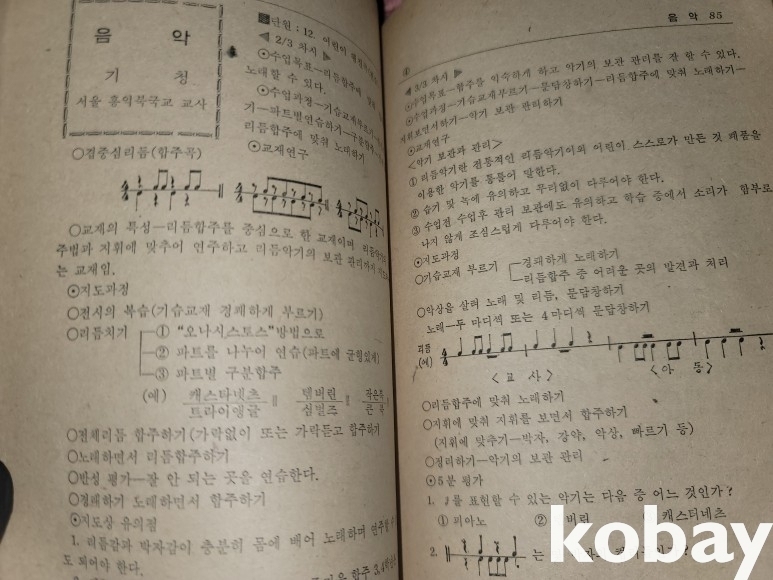 음 악
기 청
서울 홍익북국교 교사
단원 : 12. 어린이
◀ 2/3 차시 ▶
⊙수업목표—리듬합주에
노래할 수 있다.
⊙수업과정—기습교재부르기
기—파트별연습하기—구분합주
리듬합주에 맞춰 노래하기
⊙교재연구
○집중심리듬(합주곡)
○교재의 특성—리듬합주를 중심으로 한 교재이며
주법과 지휘에 맞추어 연주하고 리듬악기의 보관 관리까지
는 교재임.
⊙지도과정
○전시의 복습(기습교재 경쾌하게 부르기)
○리듬치기
① "오나시스토스"방법으로
② 파트를 나누어 연습(파트에 균형있게)
③ 파트별 구분합주
(예) 캐스타네츠 탬버린 작은북
트라이앵글 심벌즈 큰 북
○전체리듬 합주하기(가락없이 또는 가락듣고 합주하기
○노래하면서 리듬합주하기
○반성 평가—잘 안 되는 곳을 연습한다.
○경쾌하기 노래하면서 합주하기
⊙지도상 유의점
1. 리듬감과 박자감이 충분히 몸에 배어 노래하며 연주할
도 되어야 한다.
합주 3,4학년
음 악 85
◀ 3/3 차시 ▶
⊙수업목표—합주를 익숙하게 하고 악기의 보관 관리를 잘 할 수 있다.
⊙수업과정—기습교재부르기—문답창하기—리듬합주에 맞춰 노래하기—
지휘보면서하기—악기 보관 관리하기
⊙교재연구
<악기 보관과 관리>
① 리듬악기란 전통적인 리듬악기이외 어린이 스스로가 만든 것 폐품을
이용한 악기를 통틀어 말한다.
② 습기 및 녹에 유의하고 무리없이 다루어야 한다.
③ 수업전 수업후 관리 보관에도 유의하고 학습 중에서 소리가 함부로
나지 않게 조심스럽게 다루어야 한다.
⊙지도과정
○기습교재 부르기
경쾌하게 노래하기
리듬합주 중 어려운 곳의 발견과 처리
○악상을 살려 노래 및 리듬, 문답창하기
노래—두 마디씩 또는 4 마디씩 문답창하기
리듬
(예)
<교 사> <아 동>
○리듬합주에 맞춰 노래하기
○지휘에 맞춰 지휘를 보면서 합주하기
(지휘에 맞추기—박자, 강약, 악상, 빠르기 등)
○정리하기—악기의 보관 관리
⊙5분 평가
1. 를 표현할 수 있는 악기는 다음 중 어느 것인가?
① 피아노 ② 버린 캐스터네츠
2. 는
kobay